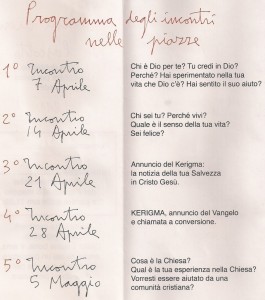 Programma degli incontri
nelle piazze
1° Incontro
7 Aprile
Chi è Dio per te? Tu credi in Dio?
Perchè? Hai sperimentato nella tua
vita che Dio c'è? Hai sentito il suo aiuto?
2° Incontro
14 Aprile
Chi sei tu? Perché vivi?
Quale è il senso della tua vita?
Sei felice?
3° Incontro
21 Aprile
Annuncio del Kerigma:
la notizia della tua Salvezza
in Cristo Gesù.
4° Incontro
28 Aprile
KERIGMA, annuncio del Vangelo
e chiamata a conversione.
5° Incontro
5 Maggio
Cosa è la Chiesa?
Qual è la tua esperienza nella Chiesa?
Vorresti essere aiutato da una
comunità cristiana?